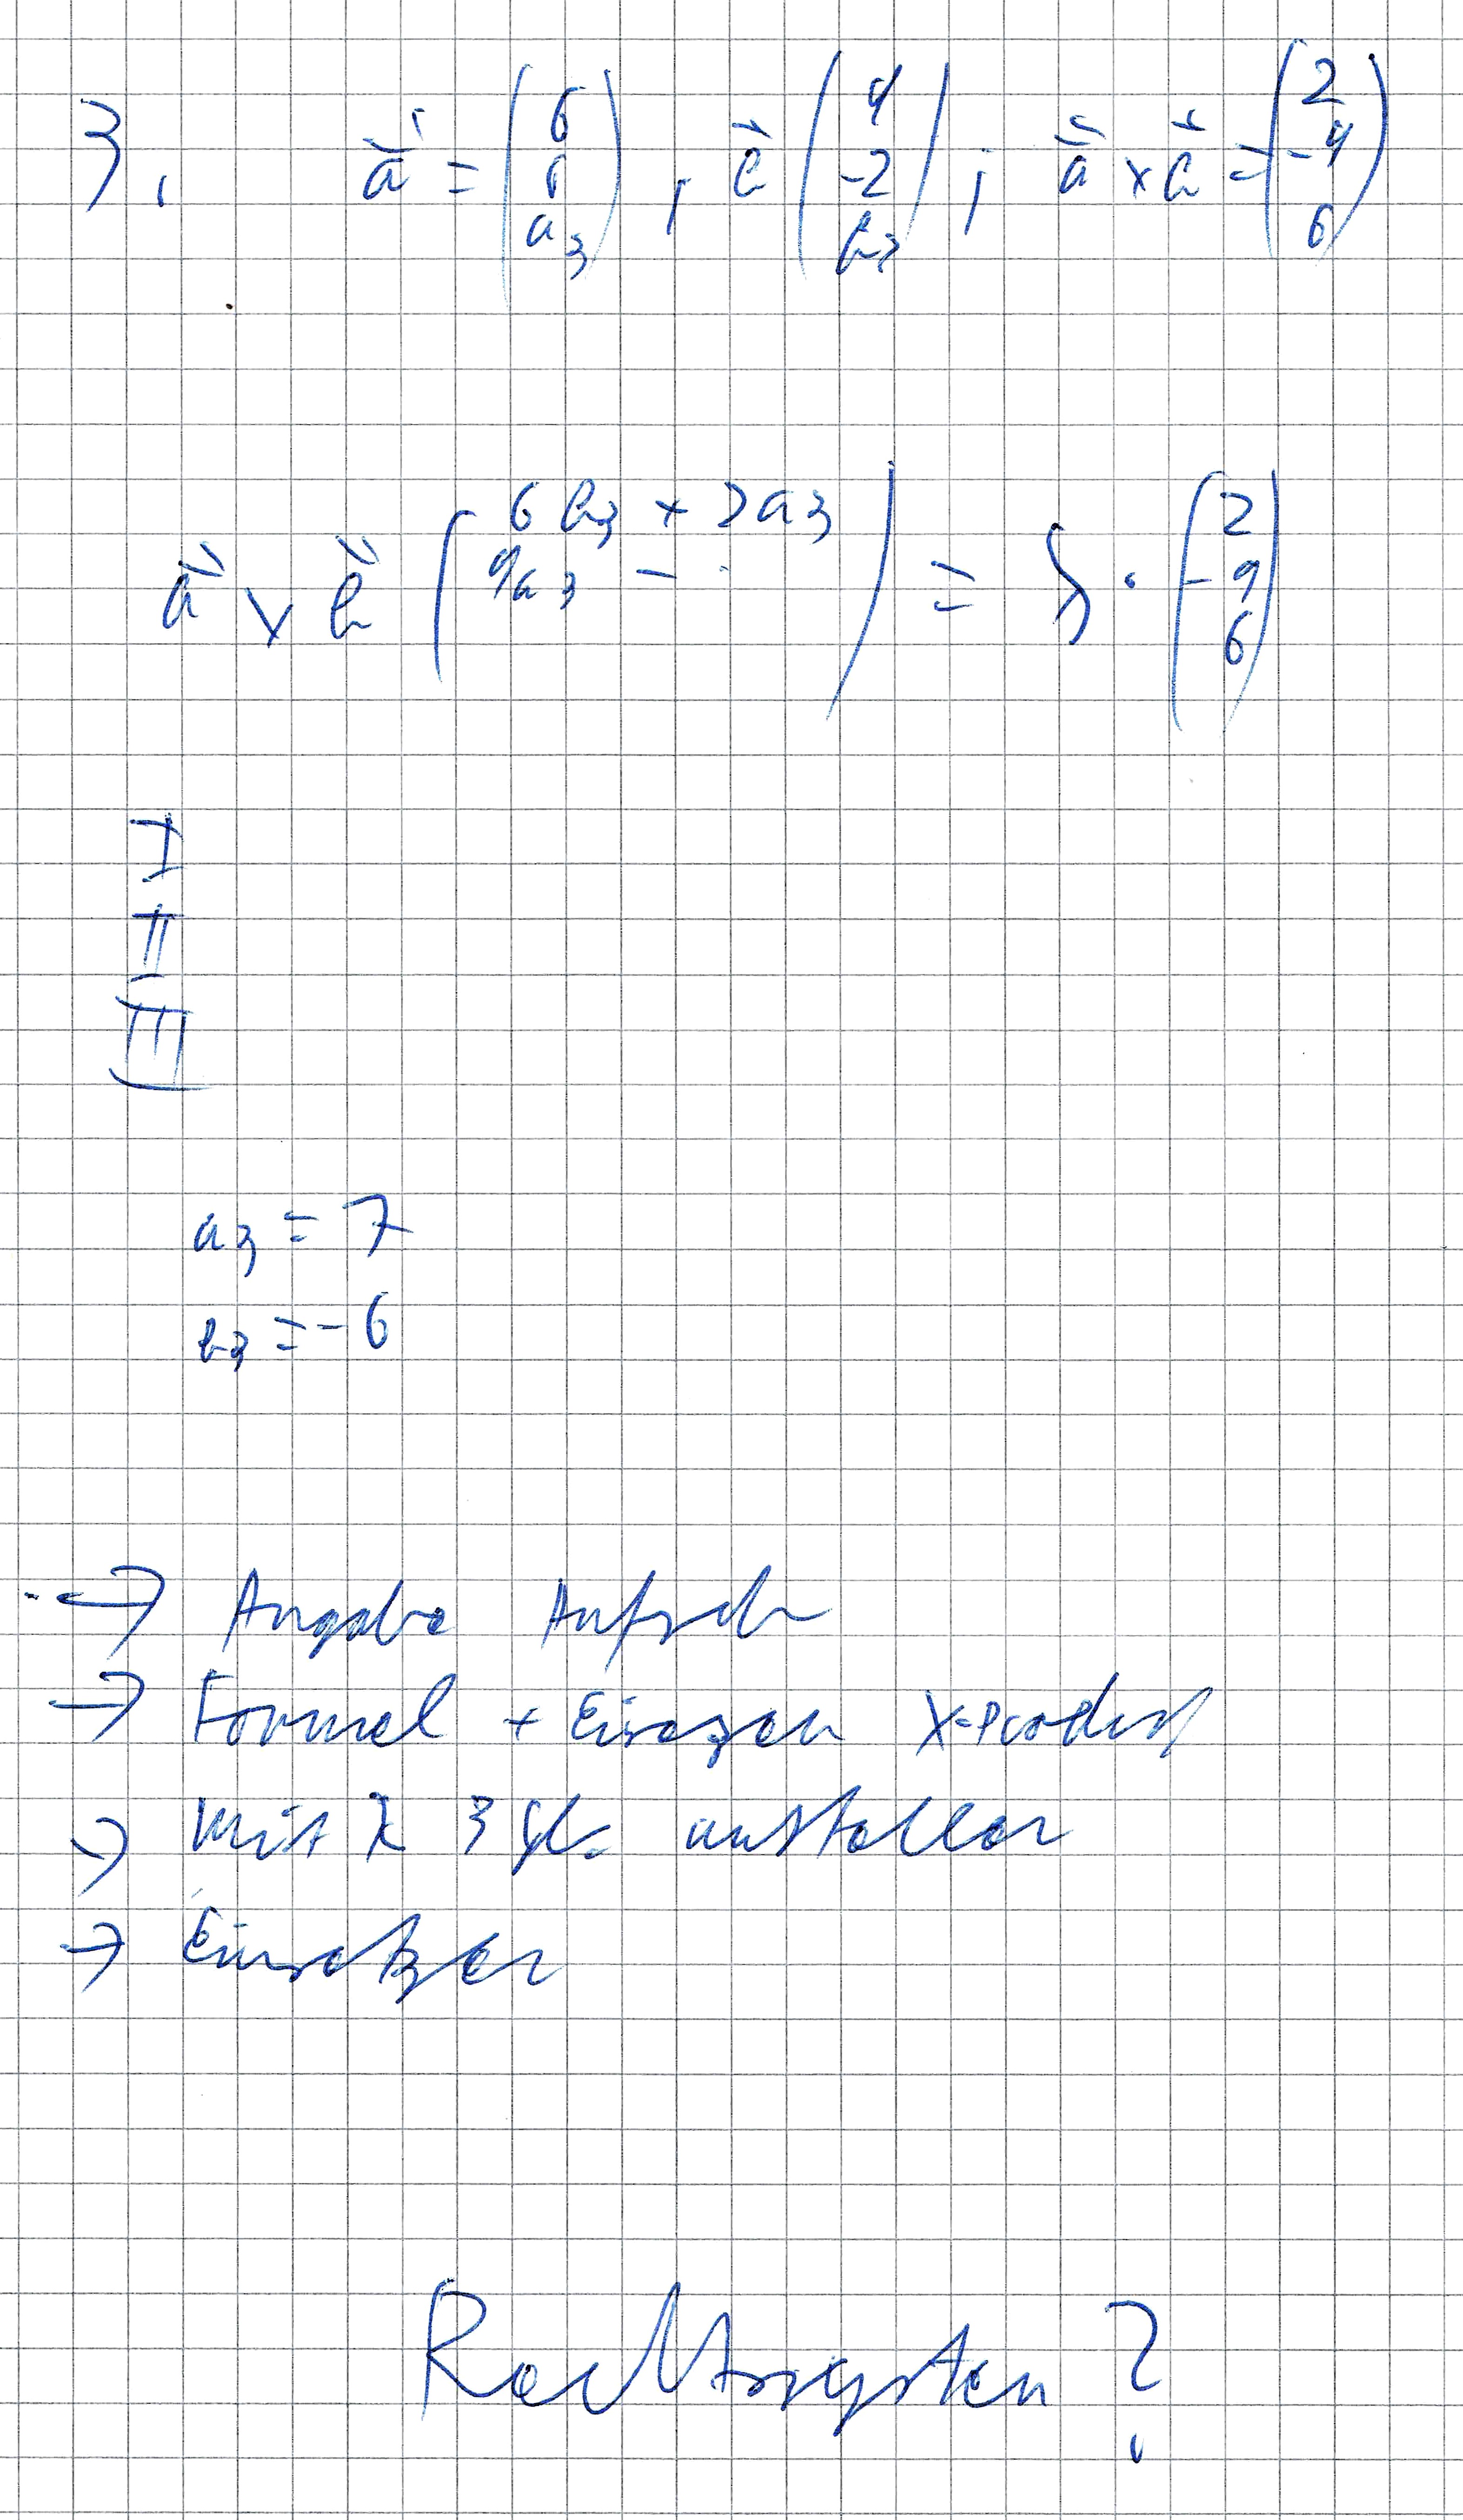 3. a⃗ = (6 6 a3), b⃗ (4 -2 b3); a⃗ x b⃗ = (2 -4 6)
a⃗ x b⃗ (6b3 + 2a3 4a3 - ) = λ · (2 -4 6)
I
II
III
a3 = 7
b3 = -6
→ Angabe
→ Formel + X-Produkt
→ mit λ 3 Gl. aufstellen
→ Einsetzen
Rechtssystem ?